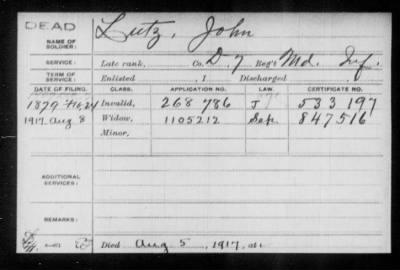 DEAD
NAME OF SOLDIER: Lutz, John
SERVICE: Late rank, Co. D, 7 Reg't Md. Inf.
TERM OF SERVICE: Enlisted , 1 Discharged
DATE OF FILING. CLASS. APPLICATION NO. LAW. CERTIFICATE NO.
1879 Feb 24 Invalid, 268 786 J 533 197
1917 Aug 8 Widow, 1105212 Sep. 847516
Minor,
ADDITIONAL SERVICES:
REMARKS:
Died Aug 5, 1917, at